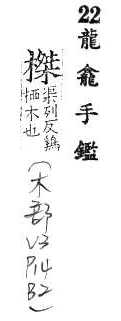 22 龍龕手鑑
榤
渠列反鷄
栖木也
(木部 V3 P14 B2)